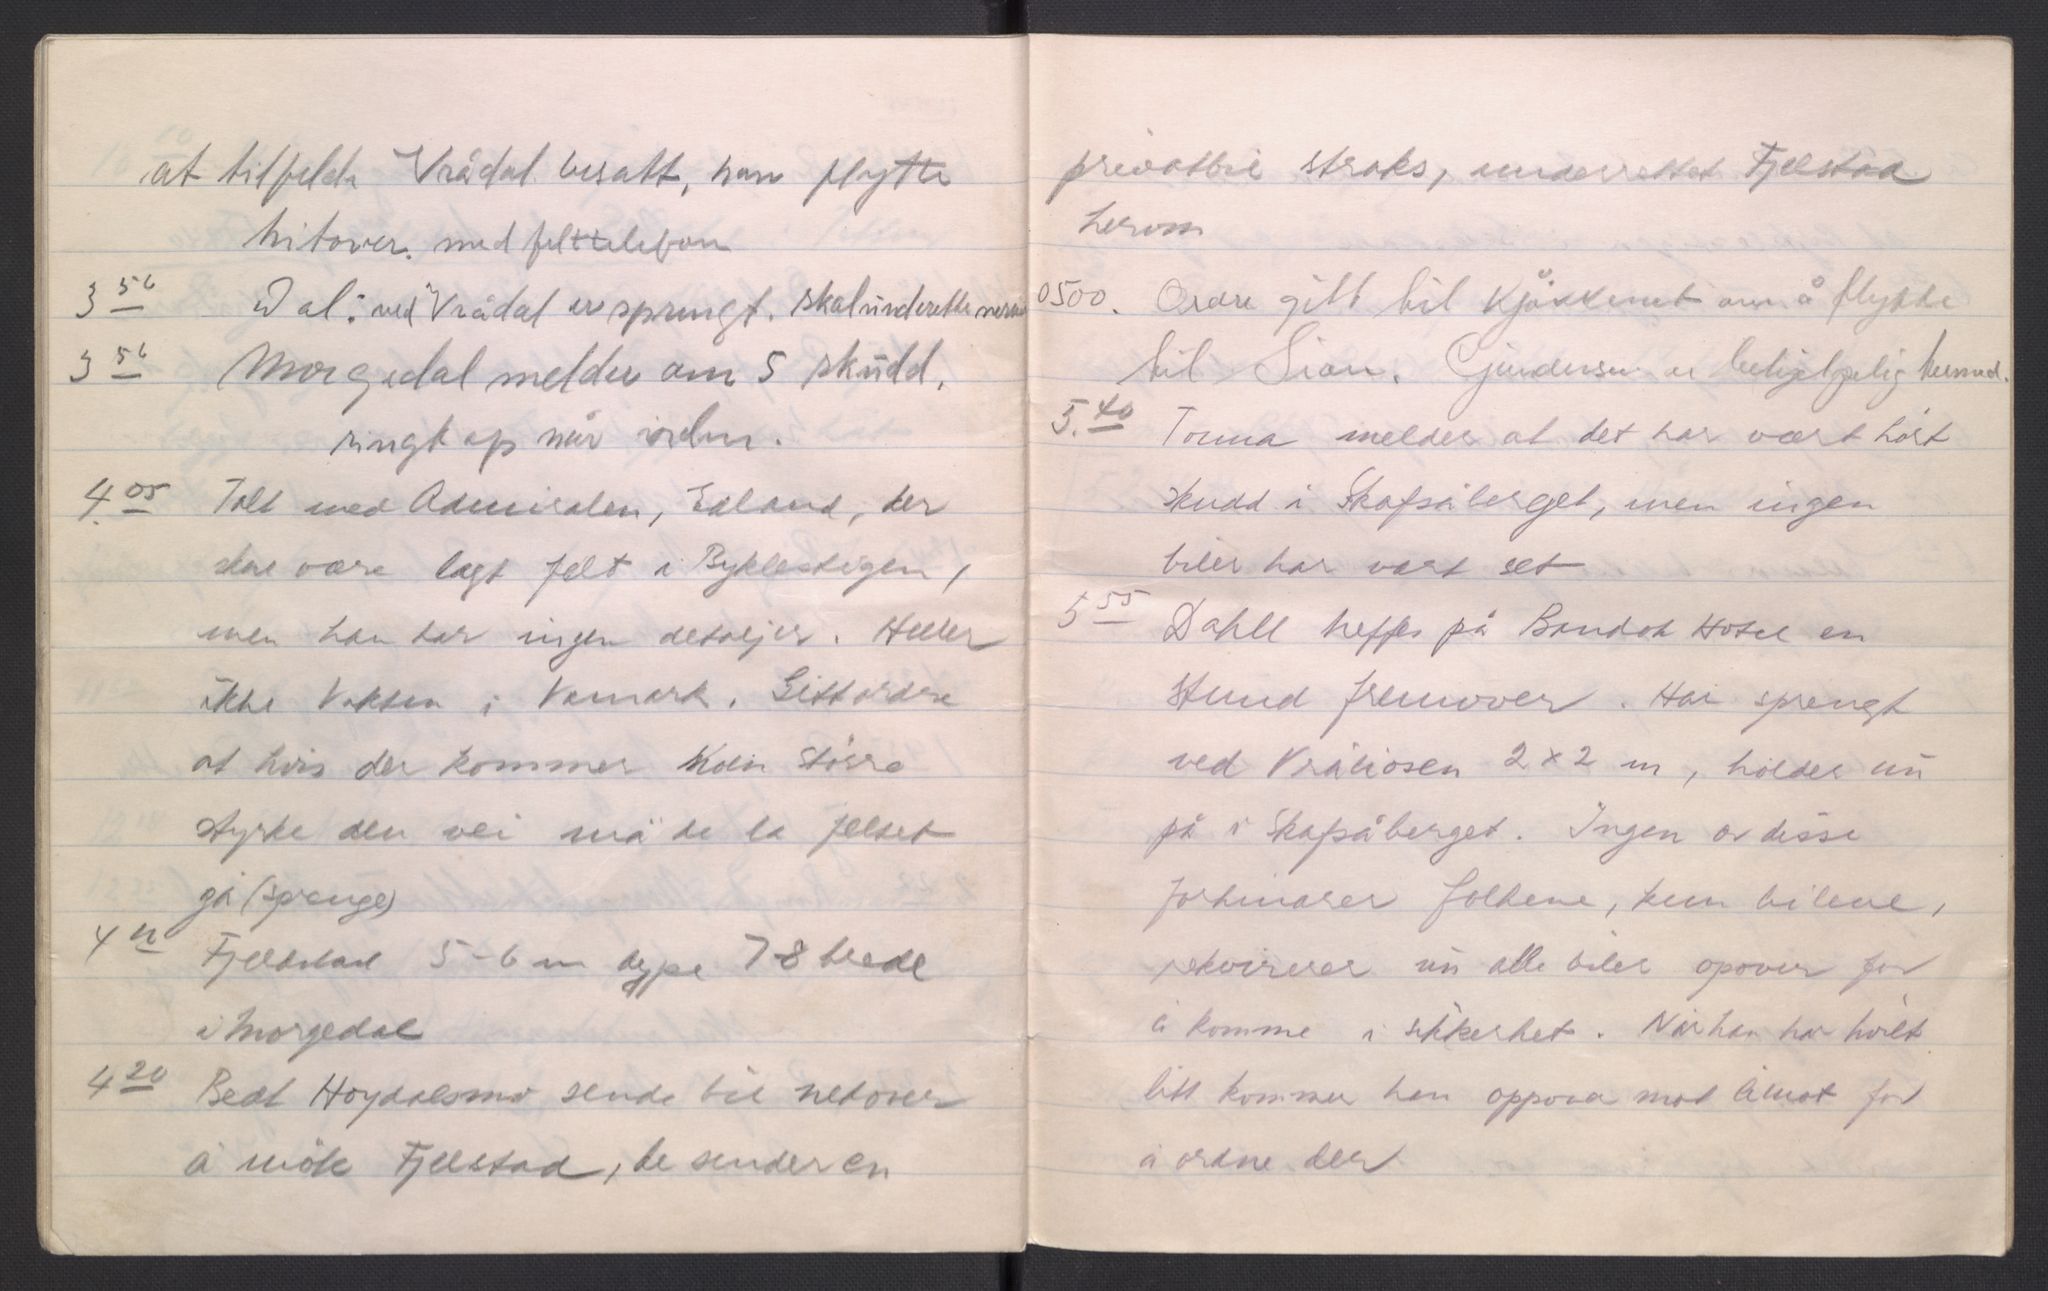 at tilfelde Vrådal besatt, han flytte
hitover. med felttelefon
3 56 Dal: ved Vrådal er sprengt. skal underette
3 56 Morgedal melder om 5 skudd.
ringt op når
4.05 Talt med Admiralen, Edland, der
skal være lagt felt i Byklestigen,
men han har ingen detaljer. Heller
ikke Vakten i Vamark. Gitt ordre
at hvis der kommer større
styrke den vei må de la feltet
gå (sprenge)
4 Fjeldstad 5-6 m dype 7-8 brede
i Morgedal
4 20 Bedt Høydalsmo sende bil nedover
å møte Fjelstad, de sender en
privatbil straks, underrettet Fjelstad
herom
0500. Ordre gitt til Kjøkkenet om å flytte
til Gundersen er behjelpelig hermed.
5.40 Tonna melder at det har vært hört
skudd i Skafsåberget, men ingen
biler har vært set
5 55 Dahll treffes på Bandak Hotel en
stund fremover. Har sprengt
ved Vråliosen 2 x 2 m, holder nu
på i Skafsåberget. Ingen av disse
forhindrer folkene, kun bilene,
rekvirerer nu alle biler opover for
å komme i sikkerhet. Når han har hvilt
litt kommer han oppova mot Åmot for
å ordne der